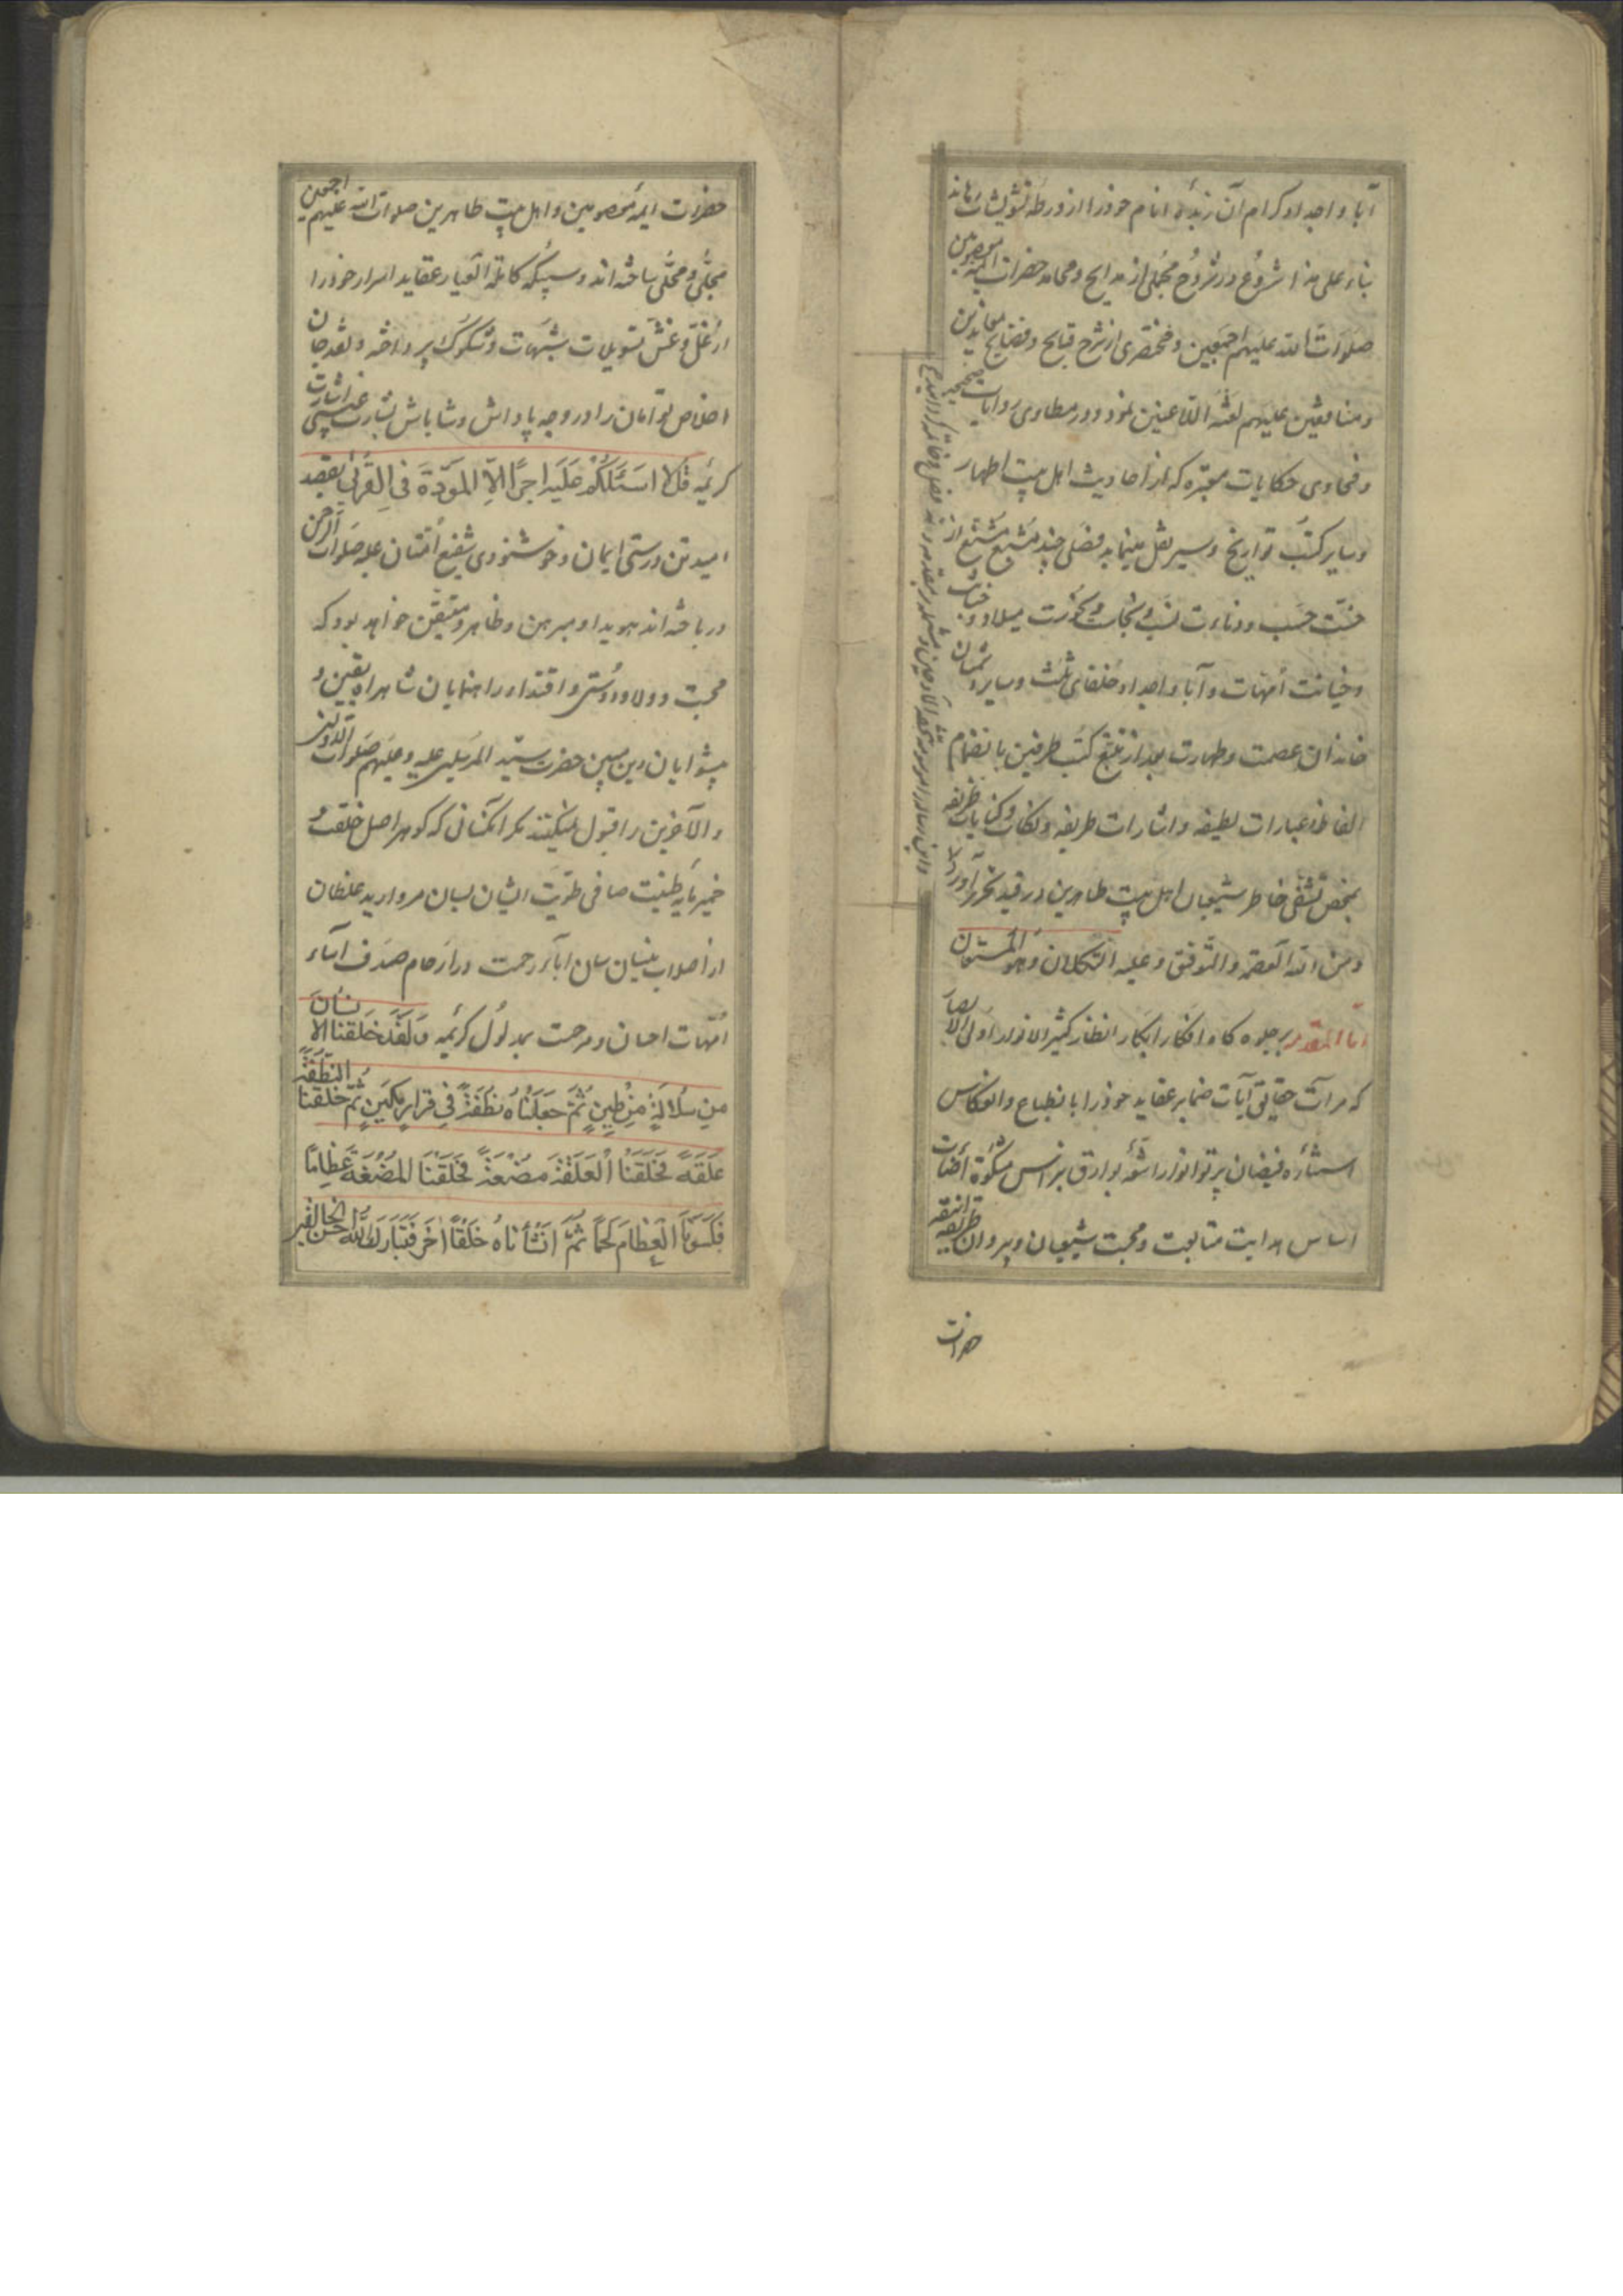 آبا و اجداد کرام آن زبدهٔ انام خود را از ورطهٔ تشویشات رهاند
بناء علی هذا شروع در شروح مجملی از مدایح و محامد حضرات ائمه معصومین
صلوات الله علیهم اجمعین و مختصری از شرح قبایح و فضایح معاندین
و منافقین علیهم لعنة اللاعنین نمود و در مطاوی روایات صحیحه
و فحاوی حکایات معتبره که از احادیث اهل بیت اطهار
و سایر کتب تواریخ و سیر نقل مینماید فصلی چند مشبع از
خسّت حسب و دنائت نسب و نجاست میلاد و خباثت
و خیانت أمهات و آبا و اجداد خلفای ثلث و سایر دشمنان
خاندان عصمت و طهارت بعد از تتبع کتب طرفین بانضمام
الفاظ و عبارات لطیفه و اشارات طریفه و نکات و کنایات ظریفه
بمحض تشفی خاطر شیعیان اهل بیت طاهرین در قید تحریر آورد
و من الله العصمة و التوفیق و علیه التکلان و هو المستعان
اما المقدمه بر جلوه کاه افکار ابکار انظار کثیر الانوار اولی الابصار
که مرآت حقایق آیات ضمایر عقاید خود را با نطباع و انعکاس
استناره فیضان پرتو انوار اشعهٔ بوارق نبراس مشکوة اضائت
اساس هدایت متابعت و محبت شیعیان و پیروان طریقه انیقه
حضرات
حضرات ائمه معصومین و اهل بیت طاهرین صلوات الله علیهم اجمعین
مجلّی و محلّی ساخته اند و سبیکه کاملة العیار عقاید اسرار خود را
از غلّ و غشّ تسویلات شبهات و شکوک پرداخته و نقد جان
اخلاص توأمان را در وجه پاداش و شاباش بشارت غیبی اشارت
کریمه قل لا اسئلکم علیه اجرا الا المودة فی القربی بقصد
امید تن درستی ایمان و خوشنودی شفیع امتان علیه صلوات الرحمن
درباخته اند هویدا و مبرهن و ظاهر و متیقن خواهد بود که
محبت و ولا و دوستی و اقتدا و راهنمایان شاهراه یقین و
پیشوایان دین مبین حضرت سید المرسلین علیه و علیهم صلوات الاولین
و الآخرین را قبول نمیکنند مکر آنکسانی که کوهر اصل خلقت و
خمیر مایه طینت صافی طویّت ایشان بسان مروارید غلطان
از أصلاب نیسان سان آباء رحمت در أرحام صدف آساء
امّهات احسان و مرحمت بمدلول کریمه و لقد خلقنا الانسان
من سلالة من طین ثم جعلناه نطفة فی قرار مکین ثم خلقنا النطفة
علقة فخلقنا العلقة مضغة فخلقنا المضغة عظاما
فکسونا العظام لحما ثم انشأناه خلقا اخر فتبارک الله احسن الخالقین